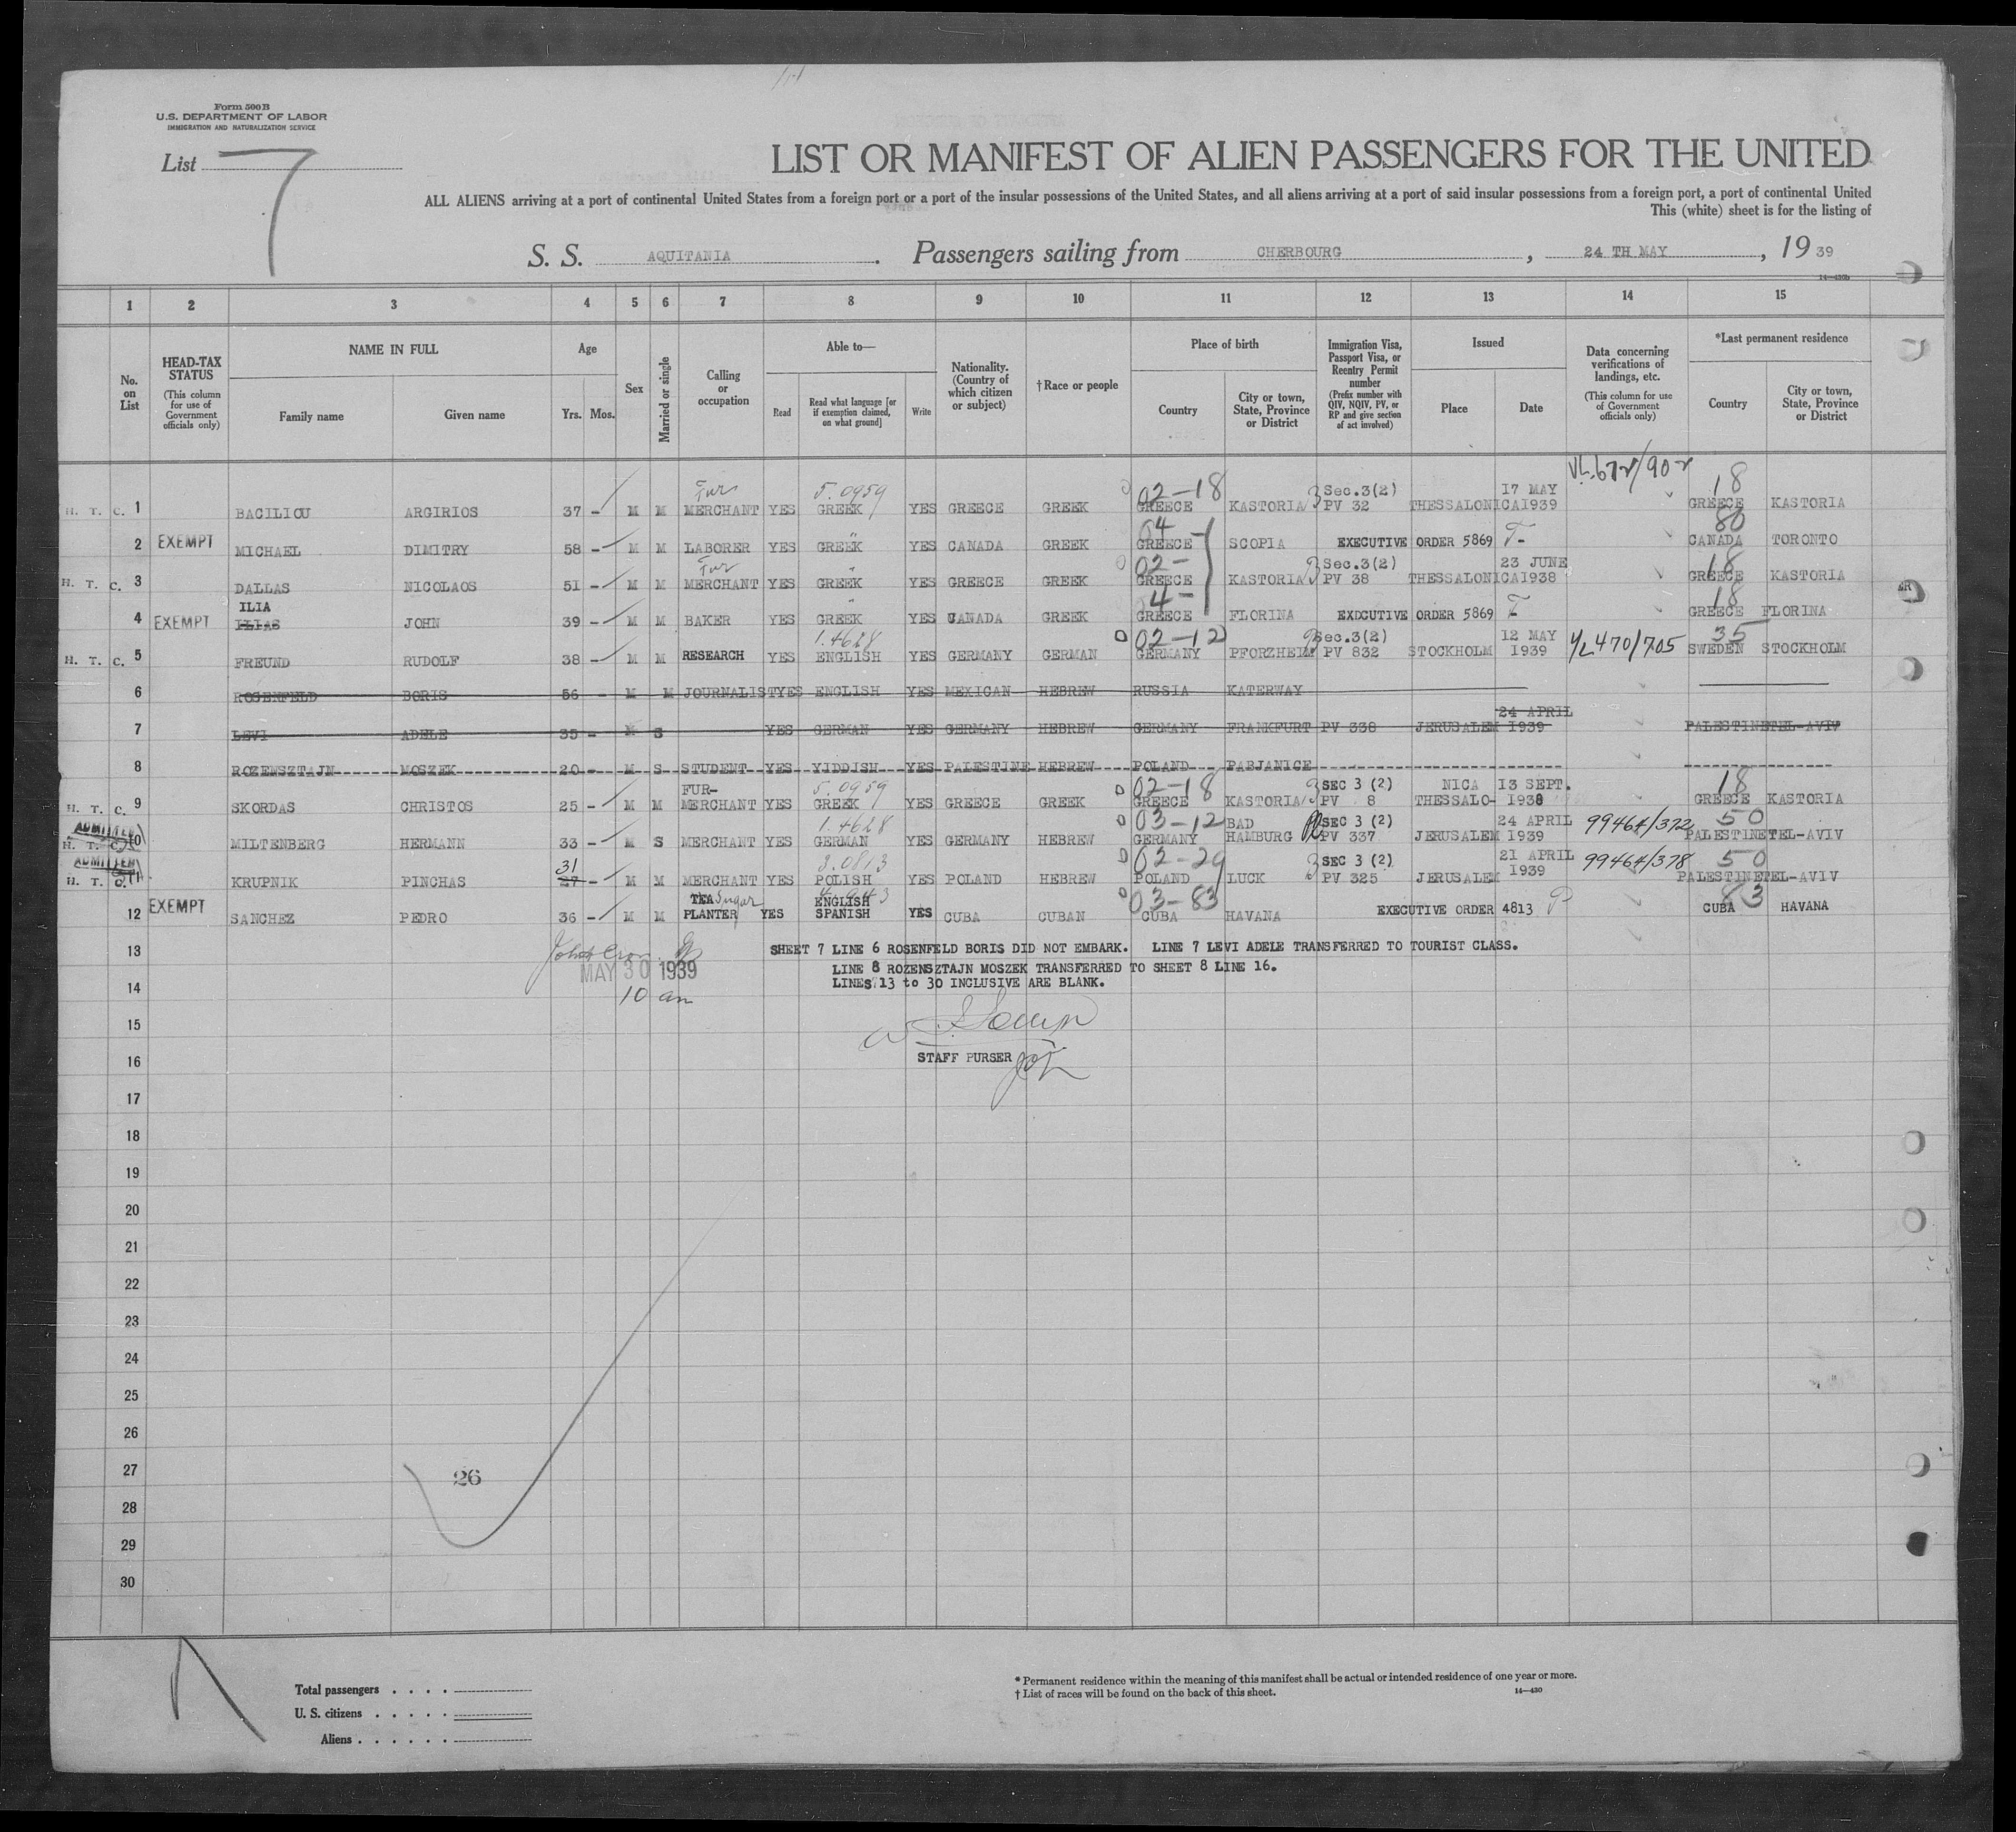 Form 500 B
U.S. DEPARTMENT OF LABOR
IMMIGRATION AND NATURALIZATION SERVICE
List 7
LIST OR MANIFEST OF ALIEN PASSENGERS FOR THE UNITED
ALL ALIENS arriving at a port of continental United States from a foreign port or a port of the insular possessions of the United States, and all aliens arriving at a port of said insular possessions from a foreign port, a port of continental United
This (white) sheet is for the listing of
S. S. AQUITANIA. Passengers sailing from CHERBOURG, 24 TH MAY, 19 39
1 2 3 4 5 6 7 8 9 10 11 12 13 14 15
No. on List
HEAD-TAX STATUS (This column for use of Government officials only)
NAME IN FULL
Family name
Given name
Age
Yrs. Mos.
Sex
Married or single
Calling or occupation
Able to—
Read
Read what language [or if exemption claimed, on what ground]
Write
Nationality. (Country of which citizen or subject)
†Race or people
Place of birth
Country
City or town, State, Province or District
Immigration Visa, Passport Visa, or Reentry Permit number (Prefix number with QIV, NQIV, PV, or RP and give section of act involved)
Issued
Place
Date
Data concerning verifications of landings, etc. (This column for use of Government officials only)
*Last permanent residence
Country
City or town, State, Province or District
Fur 5.0959 02-18 Sec.3(2) 17 MAY 18
H. T. C. 1 BACILIOU ARGIRIOS 37 - M M MERCHANT YES GREEK YES GREECE GREEK GREECE KASTORIA PV 32 THESSALONICA 1939 GREECE KASTORIA
04 80
2 EXEMPT MICHAEL DIMITRY 58 - M M LABORER YES GREEK YES CANADA GREEK GREECE SCOPIA EXECUTIVE ORDER 5869 CANADA TORONTO
Fur 02- Sec.3(2) 23 JUNE 18
H. T. C. 3 DALLAS NICOLAOS 51 - M M MERCHANT YES GREEK YES GREECE GREEK GREECE KASTORIA PV 38 THESSALONICA 1938 GREECE KASTORIA
ILIA 4- 18
4 EXEMPT ILIAS JOHN 39 - M M BAKER YES GREEK YES CANADA GREEK GREECE FLORINA EXDCUTIVE ORDER 5869 GREECE FLORINA
1.4628 02-12 Sec.3(2) 12 MAY 35
H. T. C. 5 FREUND RUDOLF 38 - M M RESEARCH YES ENGLISH YES GERMANY GERMAN GERMANY PFORZHEIM PV 832 STOCKHOLM 1939 470/705 SWEDEN STOCKHOLM
6 ROSENFELD BORIS 56 - M M JOURNALIST YES ENGLISH YES MEXICAN HEBREW RUSSIA KATERWAY
24 APRIL
7 LEVI ADELE 35 - M S YES GERMAN YES GERMANY HEBREW GERMANY FRANKFURT PV 338 JERUSALEM 1939 PALESTINE TEL-AVIV
8 ROZENSZTAJN MOSZEK 20 - M S STUDENT YES YIDDISH YES PALESTINE HEBREW POLAND PABJANICE
FUR- 5.0959 02-18 SEC 3 (2) NICA 13 SEPT. 18
H. T. C. 9 SKORDAS CHRISTOS 25 - M M MERCHANT YES GREEK YES GREECE GREEK GREECE KASTORIA PV 8 THESSALO- 1938 GREECE KASTORIA
ADMITTED 1.4628 03-12 BAD SEC 3 (2) 24 APRIL 99464/372 50
H. T. C. 10 MILTENBERG HERMANN 33 - M S MERCHANT YES GERMAN YES GERMANY HEBREW GERMANY HAMBURG PV 337 JERUSALEM 1939 PALESTINE TEL-AVIV
ADMITTED 31 3.0813 02-29 SEC 3 (2) 21 APRIL 99464/378 50
H. T. C. 11 KRUPNIK PINCHAS 27 - M M MERCHANT YES POLISH YES POLAND HEBREW POLAND LUCK PV 325 JERUSALEM 1939 PALESTINE TEL-AVIV
TEA Sugar ENGLISH 03-83 83
12 EXEMPT SANCHEZ PEDRO 36 - M M PLANTER YES SPANISH YES CUBA CUBAN CUBA HAVANA EXECUTIVE ORDER 4813 CUBA HAVANA
13 SHEET 7 LINE 6 ROSENFELD BORIS DID NOT EMBARK. LINE 7 LEVI ADELE TRANSFERRED TO TOURIST CLASS.
MAY 30 1939 LINE 8 ROZENSZTAJN MOSZEK TRANSFERRED TO SHEET 8 LINE 16.
14 LINES 13 to 30 INCLUSIVE ARE BLANK.
10 am
15
16 STAFF PURSER
17
18
19
20
21
22
23
24
25
26
27 26
28
29
30
Total passengers . . . .
U. S. citizens . . . . .
Aliens . . . . . .
* Permanent residence within the meaning of this manifest shall be actual or intended residence of one year or more.
† List of races will be found on the back of this sheet.
14—430